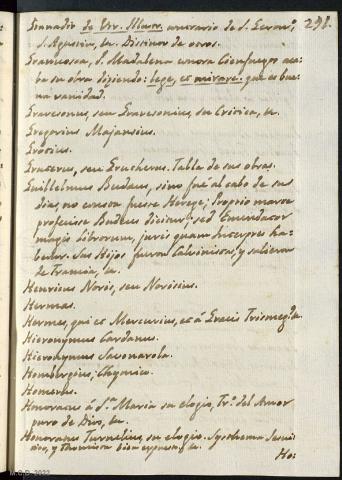 Gennadio de Vir. Illustr. 298.
S. Agustin, &c. Distinto de otros.
Gravinosa, S. Madalena
ba su obra diziendo: lege, et mirare. que es bue-
na vanidad.
Gravesonus, seu Gravesonius, su Critica, &c.
Gregorius Majansius.
Grocius.
Gruterus, seu Grutherus. Tabla de sus obras.
Guillelmus Budaeus, sino fue al cabo de sus
dias, no consta fuesse Herege; Proprio marte
profecisse Budeus dicitur; sed Emendator
magis librorum, juris quam Interpres ha-
betur. Sus Hijos fueron Calvinistas, y salieron
de Francia, &c.
Henricus Noris, seu Norisius.
Hermas.
Hermes, qui et Mercurius, et á Grecis Trismegista.
Hieronymus Cardanus.
Hieronymus Savonarola.
Hombergius; Chymico.
Homerus.
Honoratus á S.ta Maria su elogio, Tr.o del Amor
puro de Dios, &c.
Honoratus Turnelius, su elogio. Systhema Jesui-
tico, y Thomista bien expuesto, &c.
Ho: